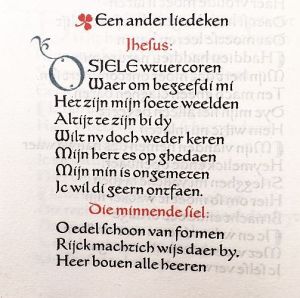 Een ander liedeken
Jhesus:
OSJELE wtuercoren
Waer om begeefdi mi
Het zijn mijn soete weelden
Altijt te zijn bi dy
Wilt nv doch weder keren
Mijn hert es op ghedaen
Mijn min is ongemeten
Jc wil di geern ontfaen.
Die minnende siel:
O edel schoon van formen
Rijck machtich wijs daer by.
Heer bouen alle heeren